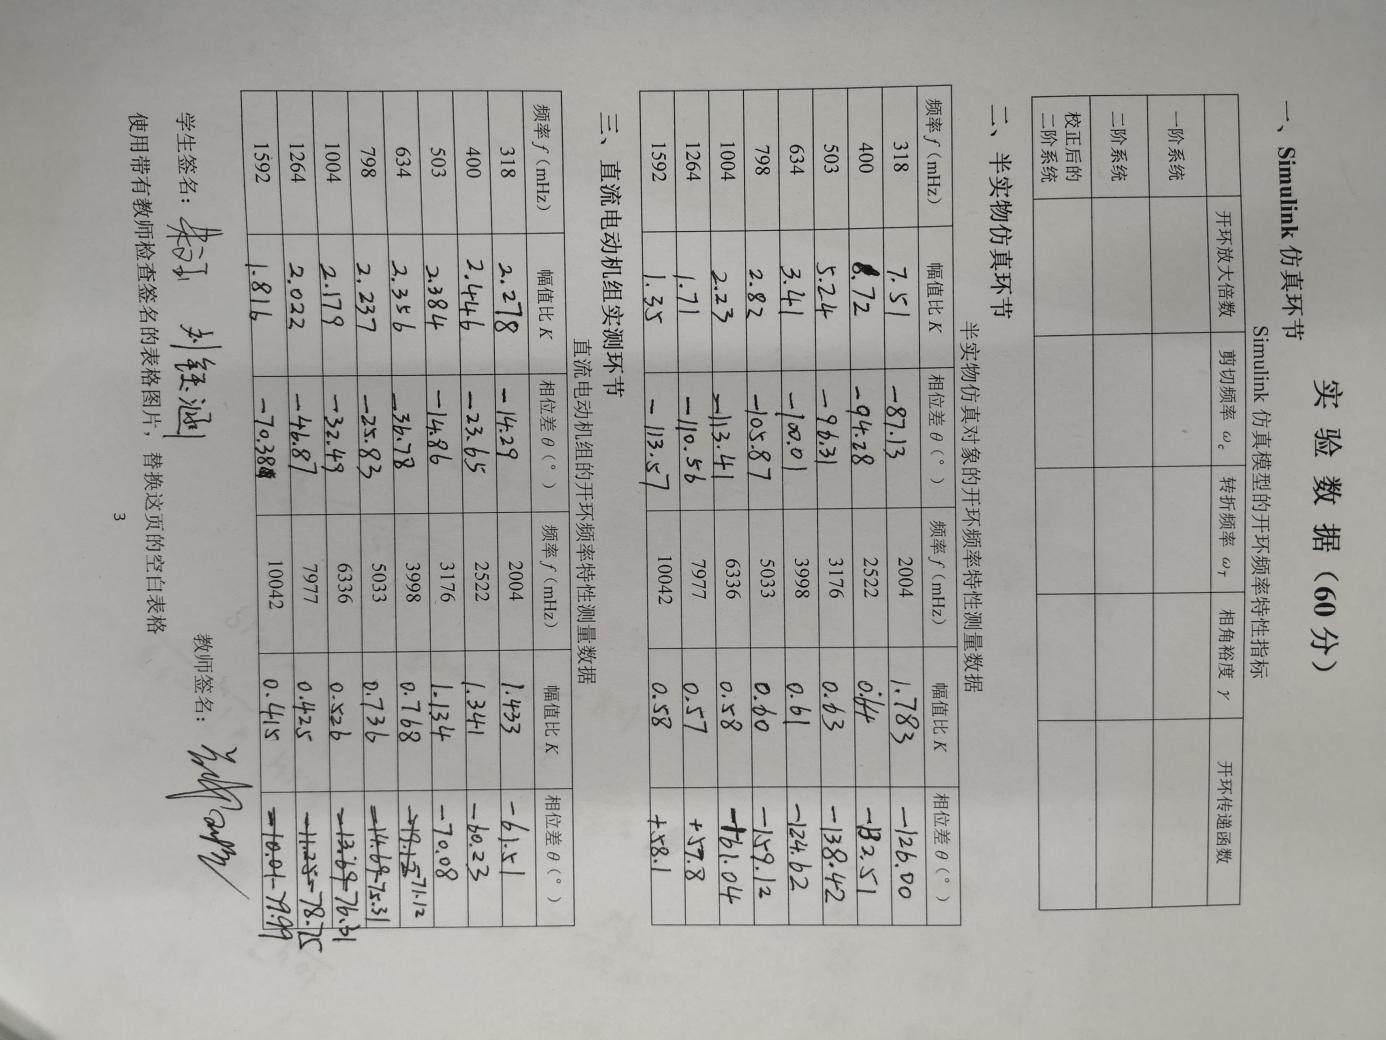 实 验 数 据（60 分）
一、Simulink 仿真环节
Simulink 仿真模型的开环频率特性指标
开环放大倍数 剪切频率 ωc 转折频率 ωT 相角裕度 γ 开环传递函数
一阶系统
二阶系统
校正后的
二阶系统
二、半实物仿真环节
半实物仿真对象的开环频率特性测量数据
频率 f（mHz） 幅值比 K 相位差 θ（°） 频率 f（mHz） 幅值比 K 相位差 θ（°）
318 7.51 -87.13 2004 1.783 -126.00
400 8.72 -94.28 2522 0.64 -132.51
503 5.24 -96.31 3176 0.63 -138.42
634 3.41 -100.01 3998 0.61 -124.62
798 2.82 -105.87 5033 0.60 -159.12
1004 2.23 -113.41 6336 0.58 -161.04
1264 1.71 -110.56 7977 0.57 +57.8
1592 1.35 -113.57 10042 0.58 +58.1
三、直流电动机组实测环节
直流电动机组的开环频率特性测量数据
频率 f（mHz） 幅值比 K 相位差 θ（°） 频率 f（mHz） 幅值比 K 相位差 θ（°）
318 2.278 -14.29 2004 1.433 -61.51
400 2.446 -23.65 2522 1.341 -60.23
503 2.384 -14.86 3176 1.134 -70.08
634 2.356 -36.78 3998 0.768 -19.12 -71.12
798 2.237 -25.83 5033 0.736 -14.69 -75.31
1004 2.179 -32.49 6336 0.526 -13.69 -76.31
1264 2.022 -46.87 7977 0.425 -11.25 -78.75
1592 1.816 -70.38 10042 0.415 -10.01 -79.99
学生签名： 教师签名：
使用带有教师检查签名的表格图片，替换这页的空白表格
3